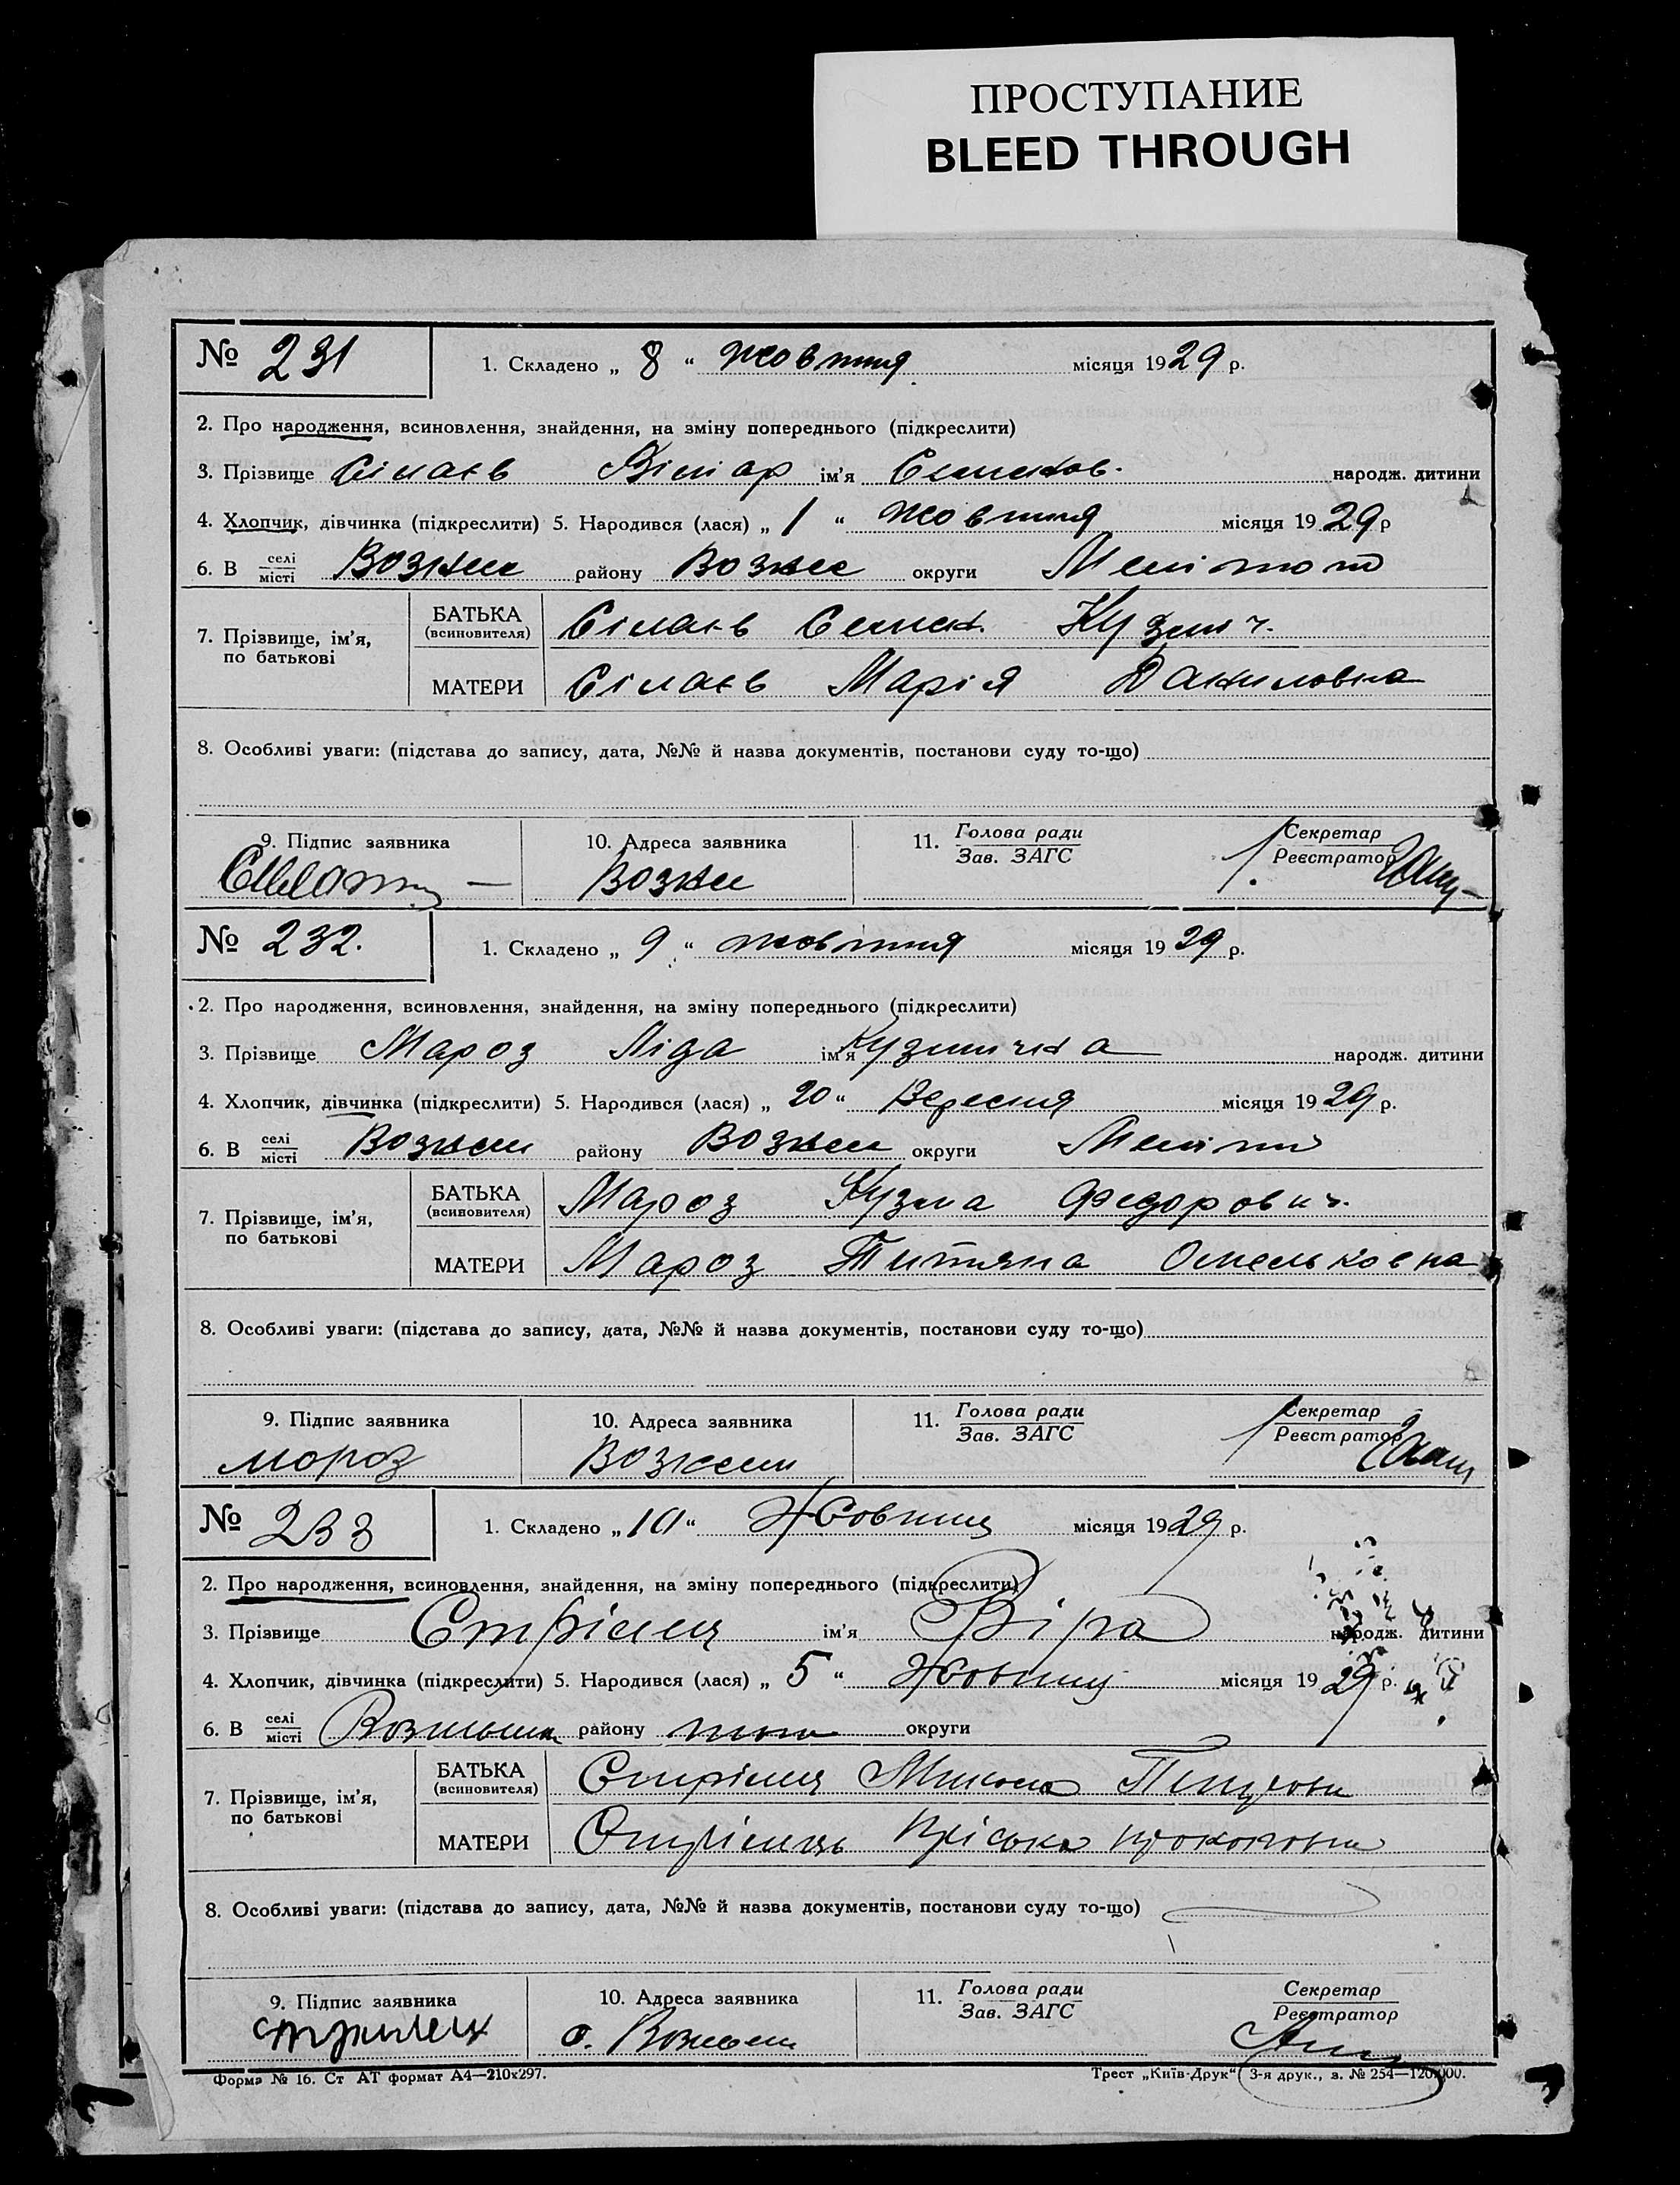 ПРОСТУПАНИЕ
BLEED THROUGH
№ 231
1. Складено „ 8 “ жовтня місяця 1929 р.
2. Про народження, всиновлення, знайдення, на зміну попереднього (підкреслити)
3. Прізвище Сілаєв ім’я народж. дитини
4. Хлопчик, дівчинка (підкреслити) 5. Народився (лася) „ 1 “ жовтня місяця 1929 р
6. В селі місті Вознес району Вознес округи Меліто
7. Прізвище, ім’я, по батькові
БАТЬКА (всиновителя) Сілаєв Семен. Кузмич.
МАТЕРИ Сілаєв Марія Даниловна
8. Особливі уваги: (підстава до запису, дата, №№ й назва документів, постанови суду то-що)
9. Підпис заявника 10. Адреса заявника 11. Голова ради Зав. ЗАГС Секретар Реєстратор
Вознес
№ 232.
1. Складено „ 9 “ жовтня місяця 1929 р.
2. Про народження, всиновлення, знайдення, на зміну попереднього (підкреслити)
3. Прізвище Мароз Ліда ім’я Кузминична народж. дитини
4. Хлопчик, дівчинка (підкреслити) 5. Народився (лася) „ 20 “ Вересня місяця 1929 р.
6. В селі місті Вознесен району Вознес округи Меліт
7. Прізвище, ім’я, по батькові
БАТЬКА (всиновителя) Мароз Кузма Федорович.
МАТЕРИ Мароз Титяна Омельковна
8. Особливі уваги: (підстава до запису, дата, №№ й назва документів, постанови суду то-що)
9. Підпис заявника 10. Адреса заявника 11. Голова ради Зав. ЗАГС Секретар Реєстратор
мороз Вознесен
№ 233
1. Складено „ 10 “ Жовтня місяця 1929 р.
2. Про народження, всиновлення, знайдення, на зміну попереднього (підкреслити)
3. Прізвище Стрілец ім’я Віра народж. дитини
4. Хлопчик, дівчинка (підкреслити) 5. Народився (лася) „ 5 “ Жовтня місяця 1929 р.
6. В селі місті району округи
7. Прізвище, ім’я, по батькові
БАТЬКА (всиновителя) Стрілец Микола
МАТЕРИ Стрілець Пріська Прокоповна
8. Особливі уваги: (підстава до запису, дата, №№ й назва документів, постанови суду то-що)
9. Підпис заявника 10. Адреса заявника 11. Голова ради Зав. ЗАГС Секретар Реєстратор
стрилец с.
Форма № 16. Ст АТ формат А4—210x297.
Трест „Київ-Друк“ 3-я друк., з. № 254—120.000.